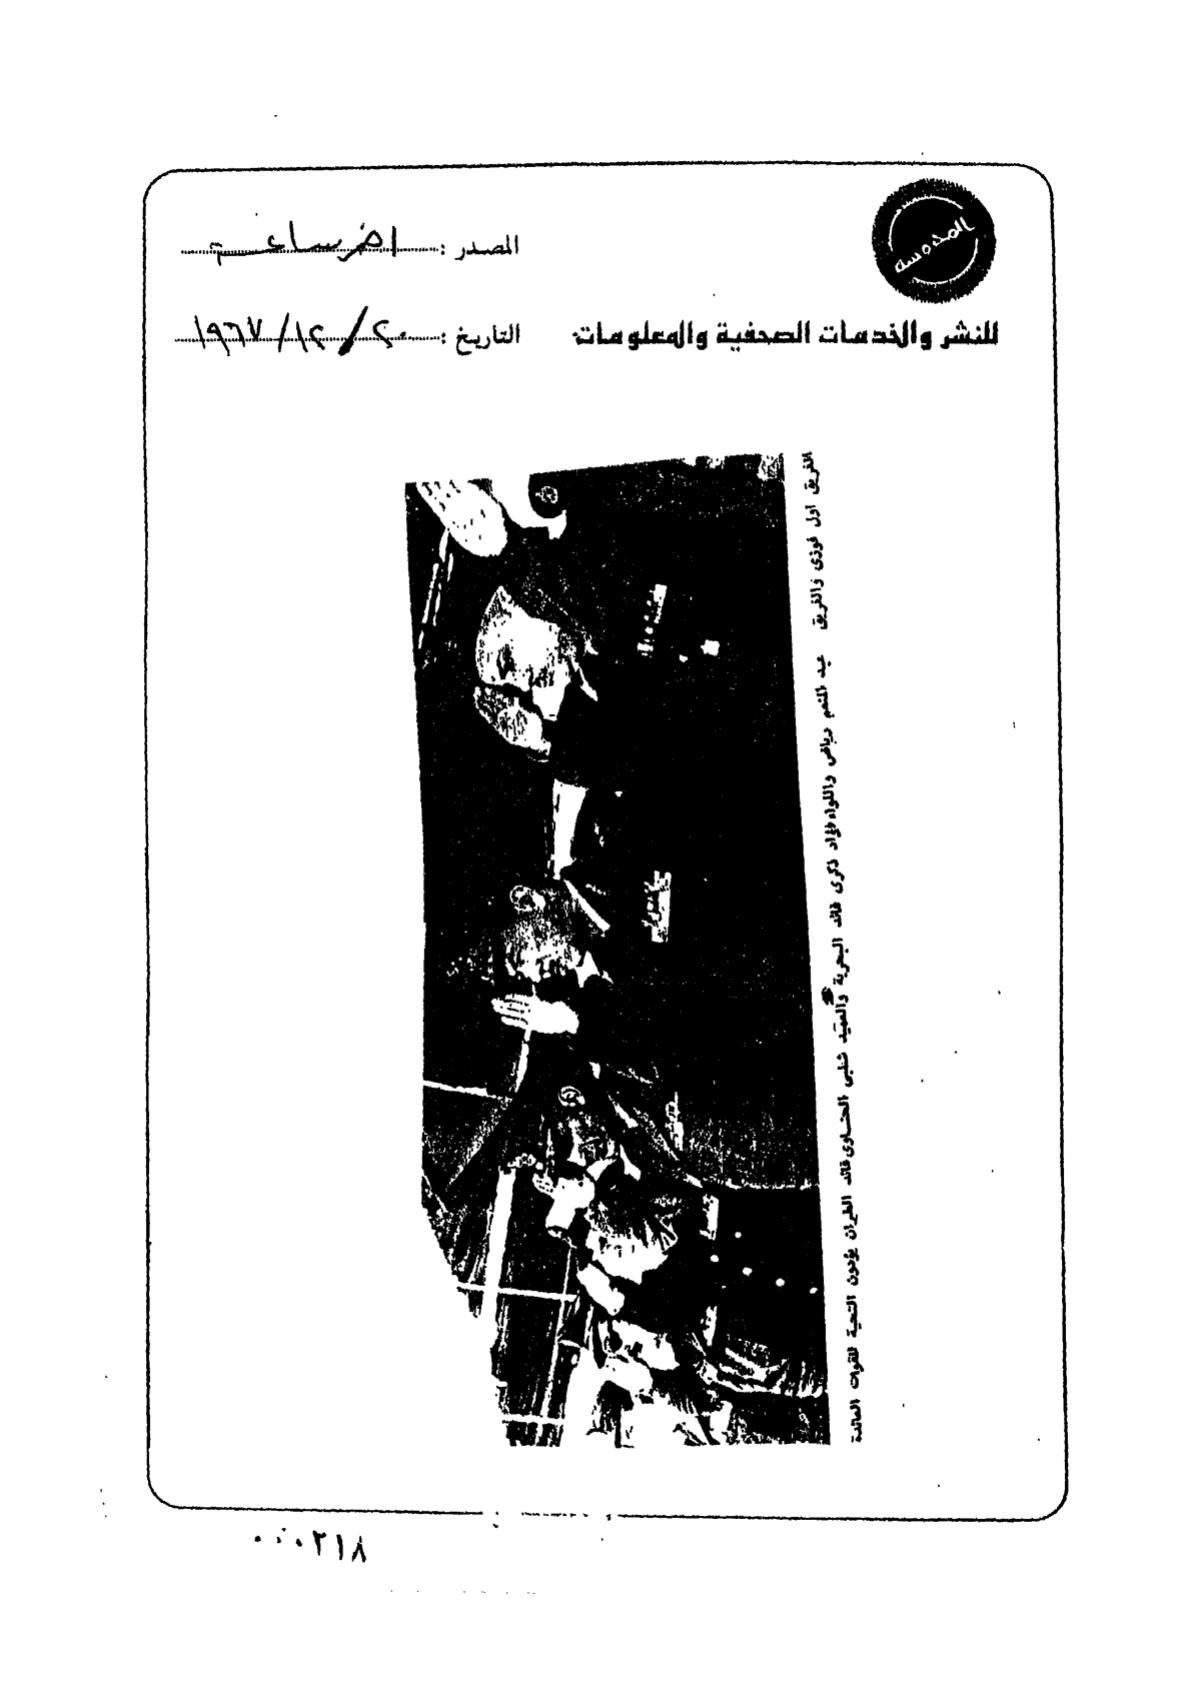 المصدر : اخر ساعة
للنشر والخدمات الصحفية والمعلومات
التاريخ : ٢٠/١٢/١٩٦٧
الفريق اول فوزى والفريق عبد المنعم رياض واللواء فؤاد ذكرى قائد البحرية والعميد شلبى الحناوى قائد الطيران يؤدون التحية للقوات العائدة
٠٠٠٢١٨